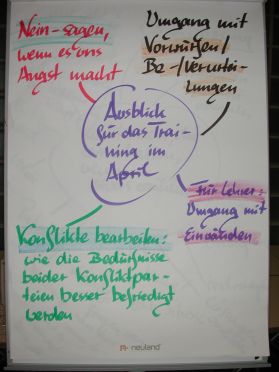 Nein-sagen,
wenn es uns
Angst macht
Umgang mit
Vorwürfen/
Be-/Verurtei-
lungen
Ausblick
für das Trai-
ning im
April
Für Lehrer:
Umgang mit
Einwänden
Konflikte bearbeiten:
wie die Bedürfnisse
beider Konfliktpar-
teien besser befriedigt
werden
neuland